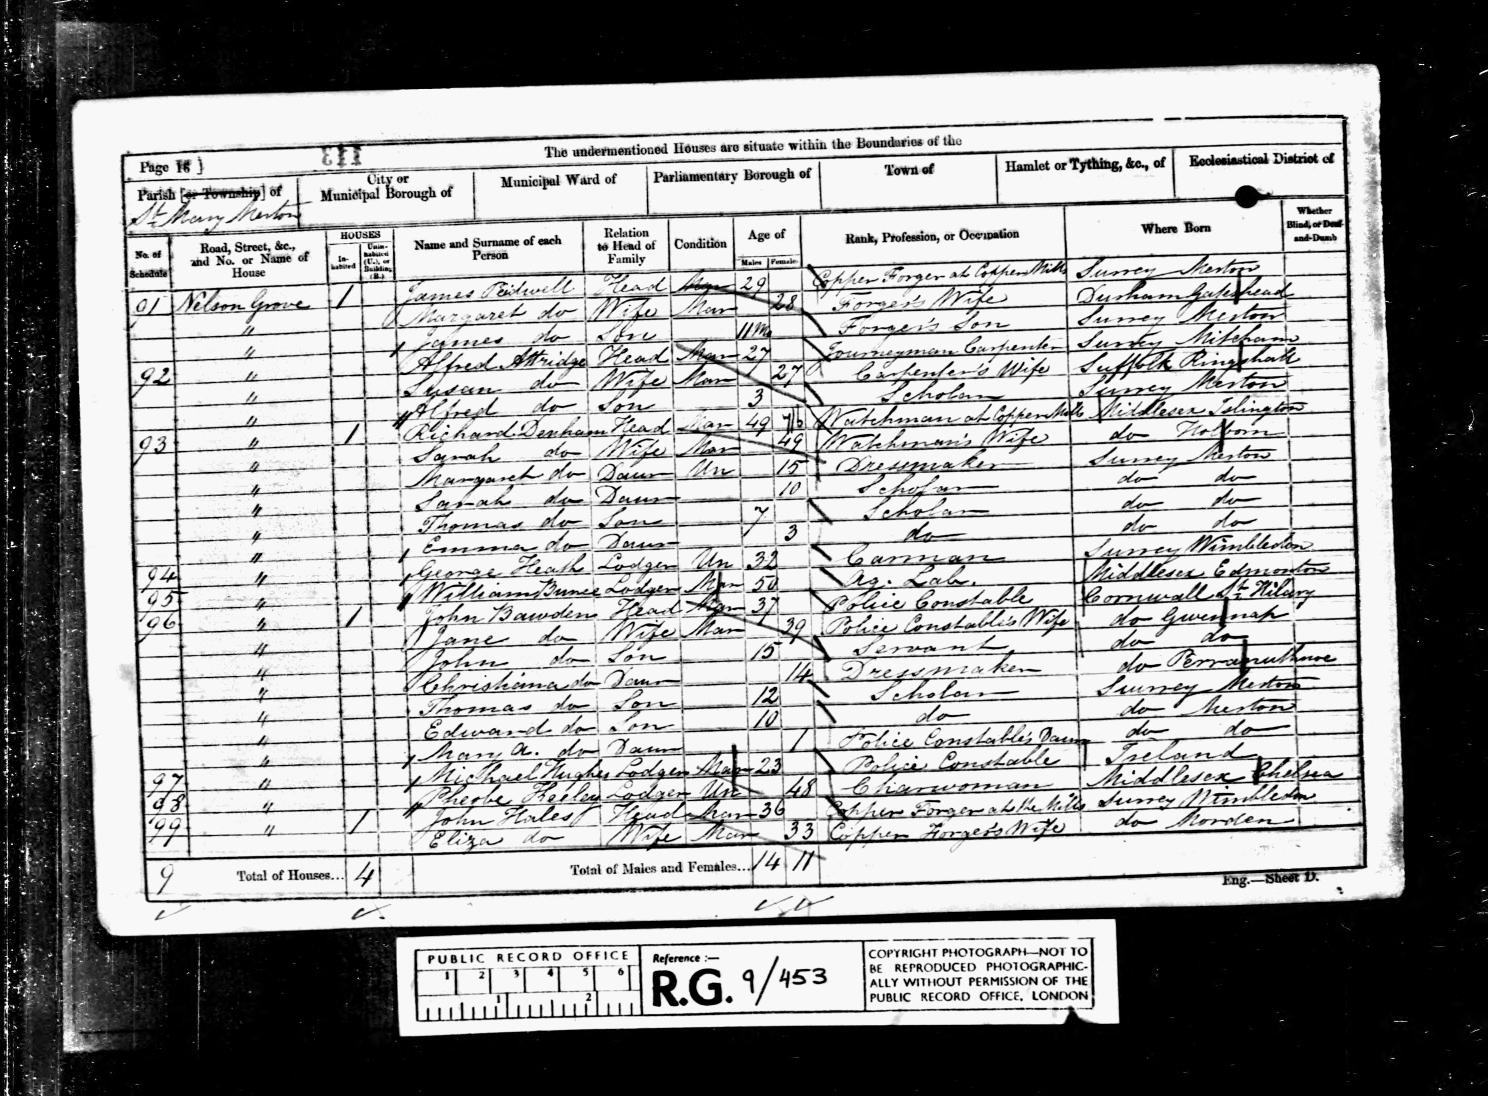 The undermentioned Houses are situate within the Boundaries of the
Page 16 ]
113
Parish [or Township] of
St. Mary Merton
City or Municipal Borough of
Municipal Ward of
Parliamentary Borough of
Town of
Hamlet or Tything, &c., of
Ecclesiastical District of
No. of Schedule
Road, Street, &c., and No. or Name of House
HOUSES
Inhabited
Uninhabited (U.), or Building (B.)
Name and Surname of each Person
Relation to Head of Family
Condition
Age of
Males Females
Rank, Profession, or Occupation
Where Born
Whether Blind, or Deaf-and-Dumb
91 Nelson Grove 1 James Head Mar 29 Copper Forger at Copper Mills Surrey Merton
" Margaret do Wife Mar 28 Forger's Wife Durham Gateshead
" James do Son 11 Mo Forger's Son Surrey Merton
92 " Alfred Attridge Head Mar 27 Journeyman Carpenter Surrey Mitcham
" Susan do Wife Mar 27 Carpenter's Wife Suffolk Ringshall
" Alfred do Son 3 Scholar Surrey Merton
93 " 1 Richard Denham Head Mar 49 Watchman at Copper Mills Middlesex Islington
" Sarah do Wife Mar 49 Watchman's Wife do Holborn
" Margaret do Daur Un 15 Dressmaker Surrey Merton
" Sarah do Daur 10 Scholar do do
" Thomas do Son 7 Scholar do do
" Emma do Daur 3 do do do
94 " George Heath Lodger Un 32 Carman Surrey Wimbledon
95 " William Lodger Mar 50 Ag. Lab. Middlesex Edmonton
96 " 1 John Bawden Head Mar 37 Police Constable Cornwall St. Hilary
" Jane do Wife Mar 39 Police Constable's Wife do Gwennap
" John do Son 15 Servant do do
" Christiana do Daur 14 Dressmaker do Perranuthnoe
" Thomas do Son 12 Scholar Surrey Merton
" Edward do Son 10 do do Merton
" Mary A. do Daur 1 Police Constable's Daur do do
97 " Michael Hughes Lodger Mar 23 Police Constable Ireland
98 " Pheobe Keeley Lodger Un 48 Charwoman Middlesex Chelsea
99 " 1 John Hales Head Mar 36 Copper Forger at the Mills Surrey Wimbledon
" Eliza do Wife Mar 33 Copper Forger's Wife do Morden
9 Total of Houses... 4 Total of Males and Females... 14 11
Eng.—Sheet D.
PUBLIC RECORD OFFICE
1 2 3 4 5 6
1 2
Reference :—
R.G. 9/453
COPYRIGHT PHOTOGRAPH—NOT TO
BE REPRODUCED PHOTOGRAPHIC-
ALLY WITHOUT PERMISSION OF THE
PUBLIC RECORD OFFICE, LONDON